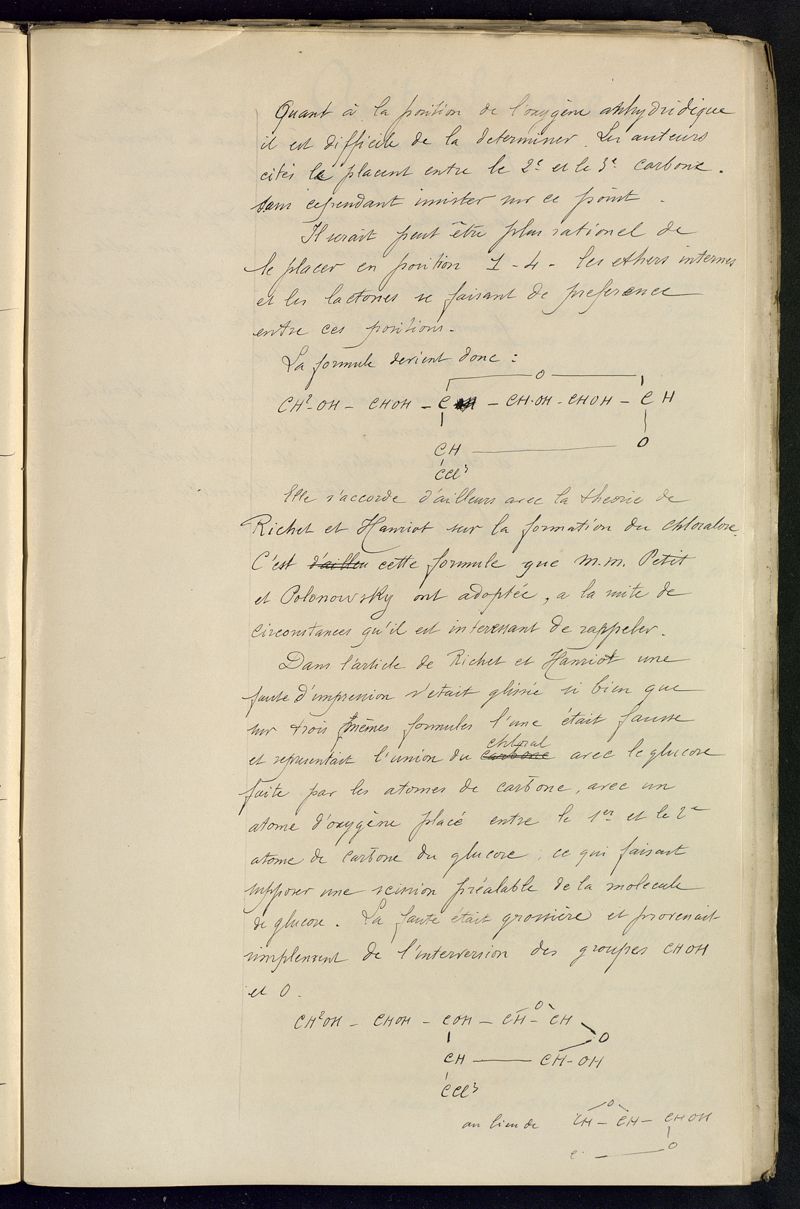 Quant à la position de l'oxygène anhydridique
il est difficile de la determiner. Les auteurs
cités le placent entre le 2e et le 3e carbone.
sans cependant insister sur ce point.
Il serait peut être plus rationel de
le placer en position 1-4 - les ethers internes
et les lactones se faisant de preference
entre ces positions.
La formule devient donc :
O
CH2-OH - CHOH - C - CH-OH - CHOH - CH
CH O
CCl3
Elle s'accorde d'ailleurs avec la theorie de
Richet et Hanriot sur la formation du chloralose.
C'est d'ailleu cette formule que M.M. Petit
et Polonowsky ont adoptée, a la suite de
circonstances qu'il est interessant de rappeler.
Dans l'article de Richet et Hanriot une
faute d'impression s'etait glissée si bien que
sur trois mêmes formules l'une était fausse
chloral
et representait l'union du carbone avec le glucose
faite par les atomes de carbone, avec un
atome d'oxygène placé entre le 1er et le 2e
atome de carbone du glucose, ce qui faisait
supposer une scission préalable de la molecule
de glucose. La faute était grossière et provenait
simplement de l'interversion des groupes CHOH
et O.
O
CH2OH - CHOH - COH - CH - CH
O
CH - CH-OH
CCl3
O
au lieu de CH - CH - CHOH
C - O